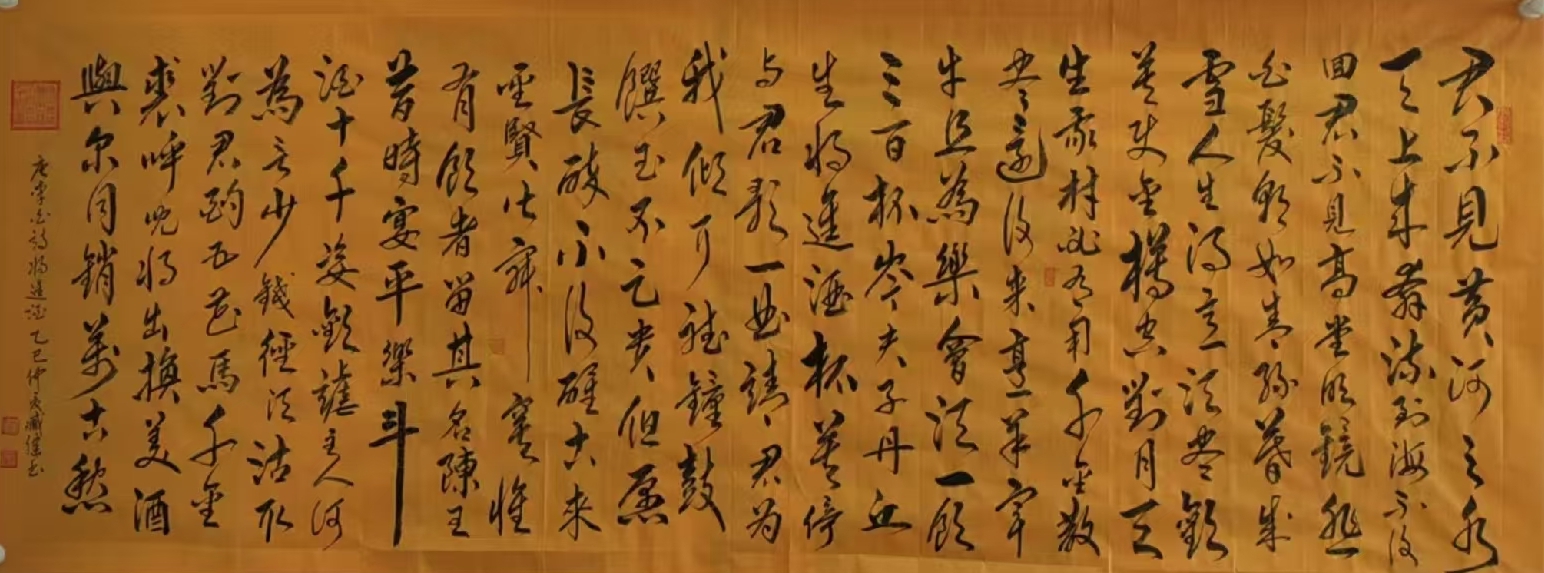 君不見黃河之水
天上來奔流到海不復
回君不見高堂明鏡悲
白髮朝如青絲暮成
雪人生得意須盡歡
莫使金樽空對月天
生我材必有用千金散
盡還復來烹羊宰
牛且為樂會須一飲
三百杯岑夫子丹丘
生將進酒杯莫停
与君歌一曲請君為
我傾耳聽鐘鼓
饌玉不足貴但願
長醉不復醒古來
聖賢皆寂寞惟
有飲者留其名陳王
昔時宴平樂斗
酒十千恣歡謔主人何
為言少錢徑須沽取
對君酌五花馬千金
裘呼兒將出換美酒
與尔同銷萬古愁
唐李白詩將進酒 乙巳仲夏書